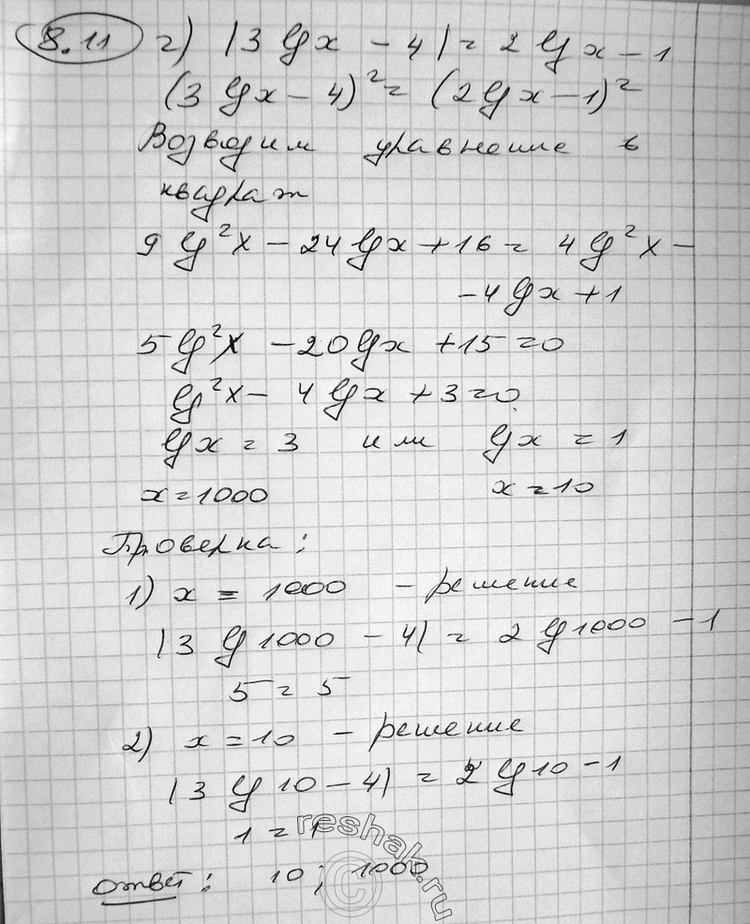 8.11 г) |3 lg x - 4| = 2 lg x - 1
(3 lg x - 4)² = (2 lg x - 1)²
Возводим уравнение в
квадрат
9 lg²x - 24 lg x + 16 = 4 lg²x -
- 4 lg x + 1
5 lg²x - 20 lg x + 15 = 0
lg²x - 4 lg x + 3 = 0
lg x = 3 или lg x = 1
x = 1000 x = 10
Проверка:
1) x = 1000 - решение
|3 lg 1000 - 4| = 2 lg 1000 - 1
5 = 5
2) x = 10 - решение
|3 lg 10 - 4| = 2 lg 10 - 1
1 = 1
ответ: 10; 1000
reshak.ru
©